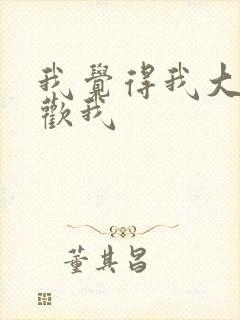 我覺得我大
歡我
董其昌